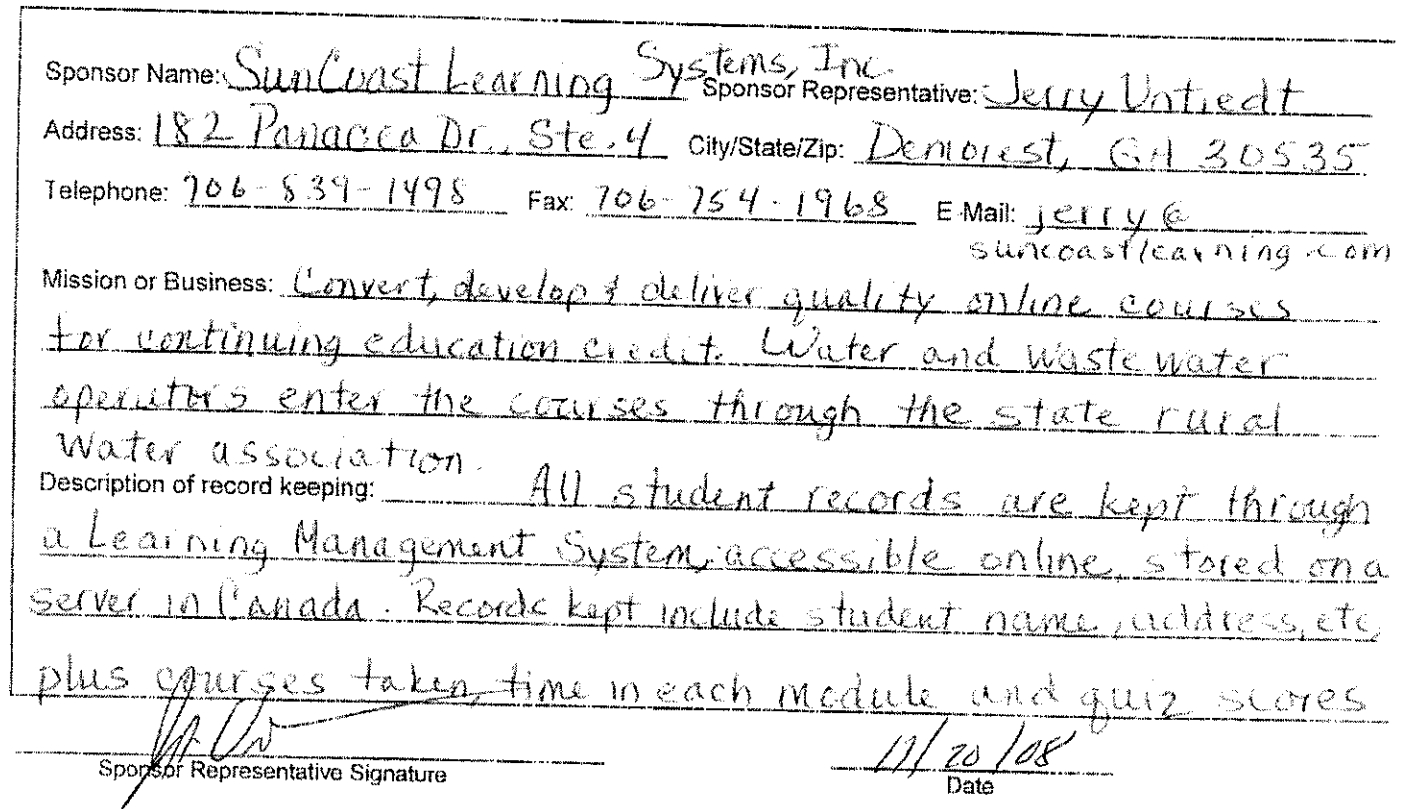 Sponsor Name: SunCoast Learning Systems, Inc. Sponsor Representative: Jerry Untiedt
Address: 182 Panacea Dr., Ste. 4 City/State/Zip: Demorest, GA 30535
Telephone: 706-839-1498 Fax: 706-754-1968 E-Mail: jerry@
suncoastlearning.com
Mission or Business: Convert, develop & deliver quality online courses
for continuing education credit. Water and wastewater
operators enter the courses through the state rural
water association.
Description of record keeping: All student records are kept through
a Learning Management System, accessible online, stored on a
server in Canada. Records kept include student name, address, etc,
plus courses taken, time in each module and quiz scores
Sponsor Representative Signature
11/20/08
Date